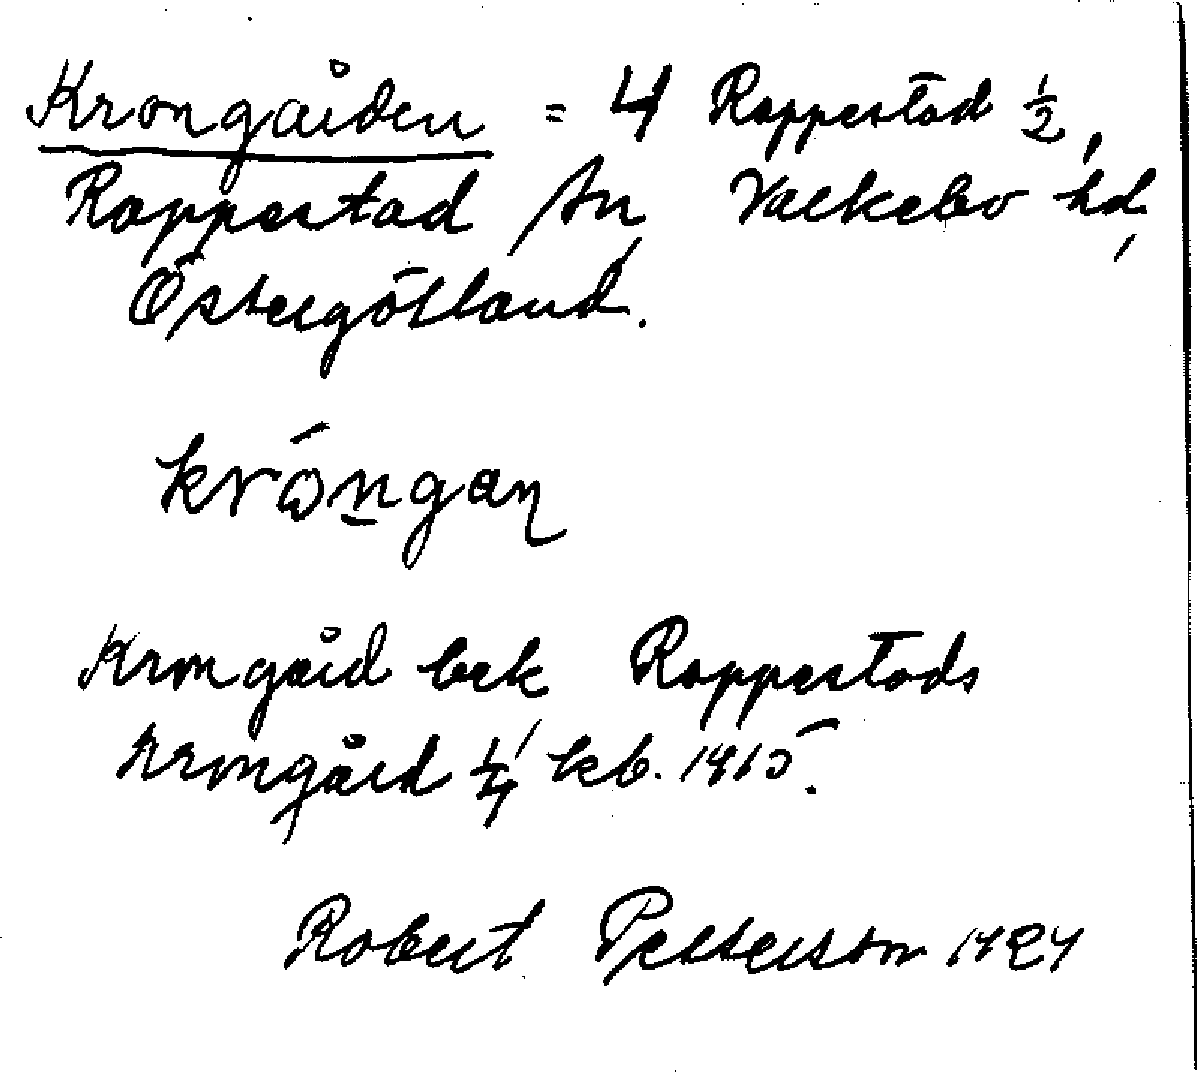 Krongården = 4 Rappestad ½,
Rappestad sn, Valkebo hd,
Östergötland.
krångan
Krongård bek Rappestads
Krongård ¼, kb. 1915.
Robert Pettersson 1924